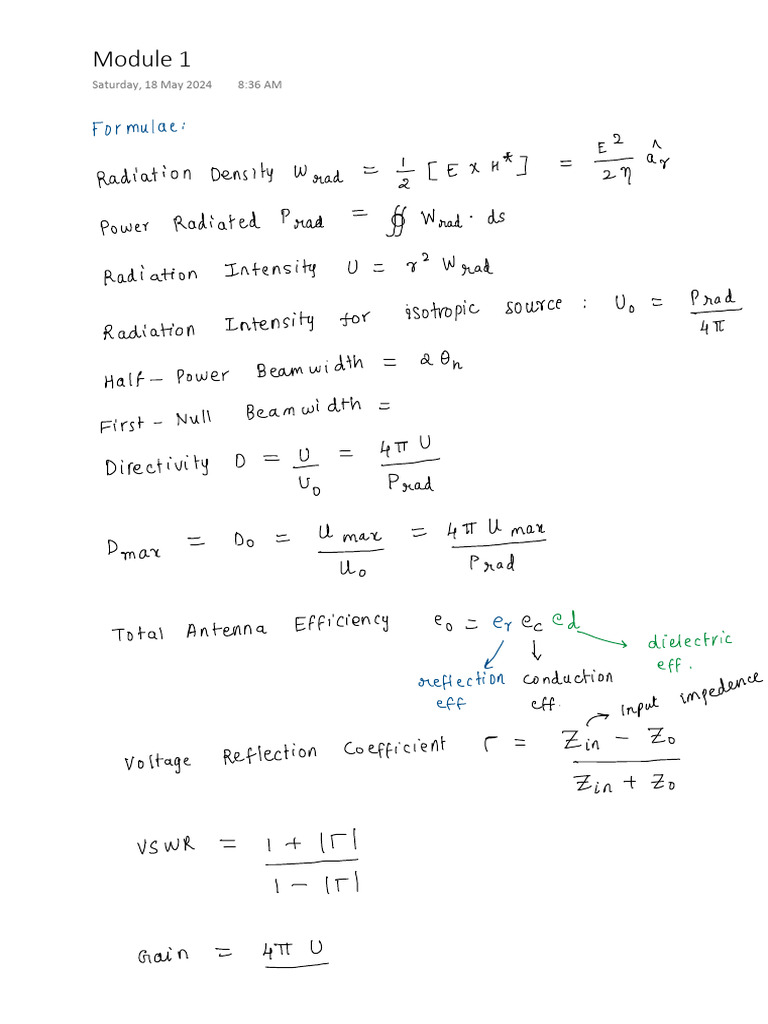 Module 1
Saturday, 18 May 2024 8:36 AM
Formulae:
Radiation Density W_rad = 1/2 [E x H*] = E²/2η â_r
Power Radiated P_rad = ∯ W_rad · ds
Radiation Intensity U = r² W_rad
Radiation Intensity for isotropic source : U₀ = P_rad/4π
Half - Power Beamwidth = 2θ_h
First - Null Beamwidth =
Directivity D = U/U₀ = 4π U/P_rad
D_max = D₀ = U_max/U₀ = 4π U_max/P_rad
Total Antenna Efficiency e₀ = e_r e_c e_d
dielectric eff.
reflection eff
conduction eff.
input impedence
Voltage Reflection Coefficient Γ = Z_in - Z₀/Z_in + Z₀
VSWR = 1 + |Γ|/1 - |Γ|
Gain = 4π U